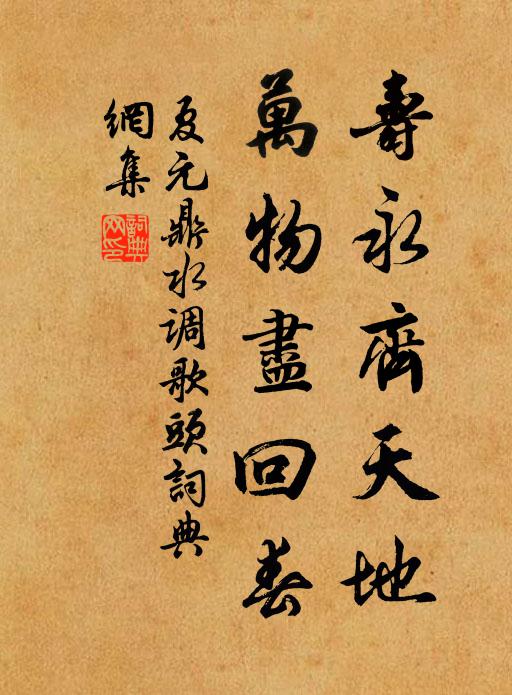 壽永齊天地
萬物盡回春
夏元鼎水调歌頭詞典
網集
詞典網印